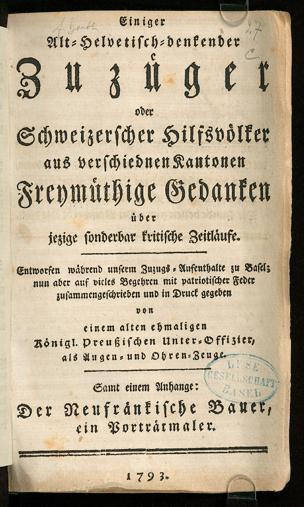 Einiger
Alt-Helvetisch-denkender
Zuzüger
oder
Schweizerscher Hilfsvölker
aus verschiednen Kantonen
Freymüthige Gedanken
über
jezige sonderbar kritische Zeitläufe.
Entworfen während unserm Zuzugs-Aufenthalte zu Basel;
nun aber auf vieles Begehren mit patriotischer Feder
zusammengeschrieben und in Druck gegeben
von
einem alten ehmaligen
Königl. Preußischen Unter-Offizier,
als Augen- und Ohren-Zeuge.
Samt einem Anhange:
Der Neufränkische Bauer,
ein Porträtmaler.
LESE
GESELLSCHAFT
BASEL
1793.